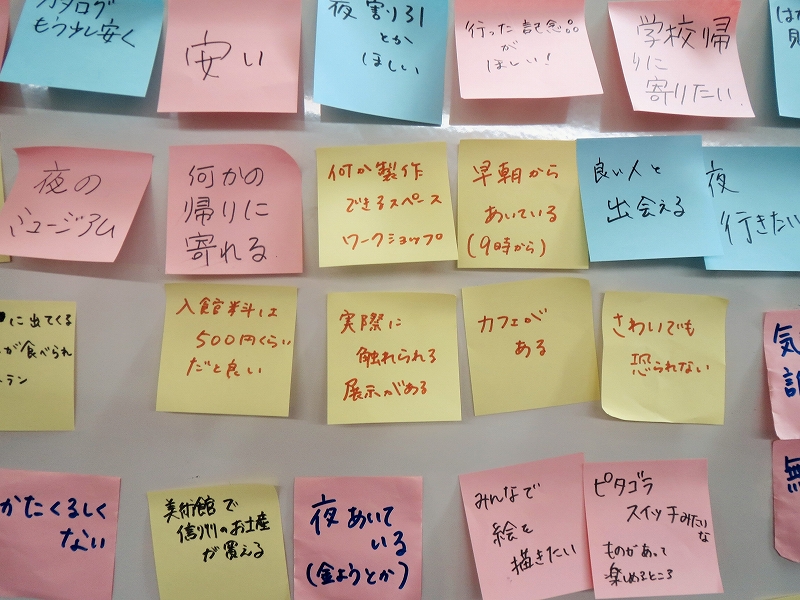 カタログ
もう少し安く
安い
夜割引
とか
ほしい
行った記念品
が
ほしい!
学校帰
りに
寄りたい.
夜の
ミュージアム
何かの
帰りに
寄れる.
何か製作
できるスペース
ワークショップ
早朝から
あいている
(9時から)
良い人と
出会える
夜
行きたい
に出てくる
が食べられ
ラン
入館料は
500円くらい
だと良い
実際に
触れられる
展示がある
カフェが
ある
さわいでも
恐られない
気
かたくるしく
ない
美術館で
のお土産
が買える
夜あいて
いる
(金ようとか)
みんなで
絵を
描きたい
ピタゴラ
スイッチみたいな
ものがあって
楽しめるところ
無